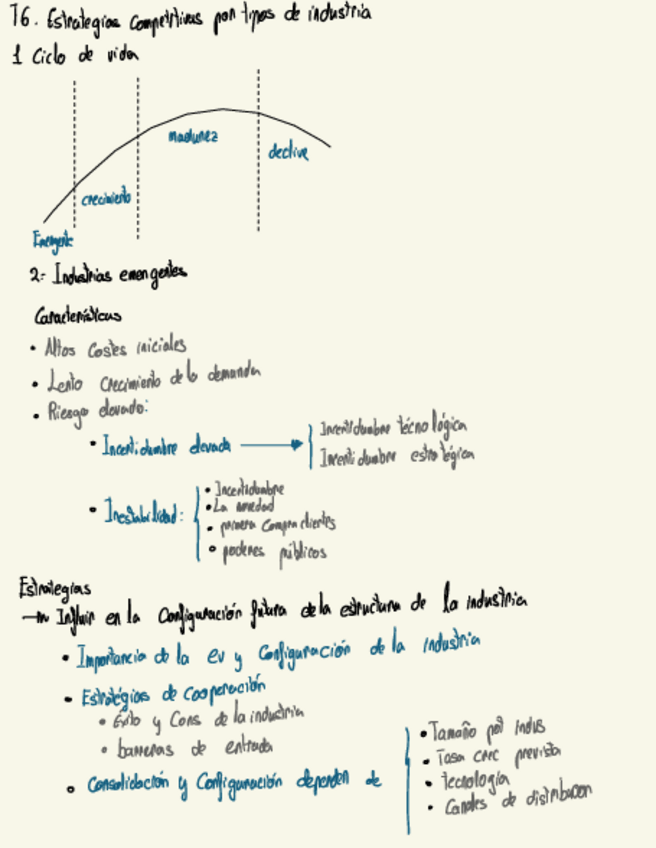 T6. Estrategias Competitivas por tipos de industria
1 Ciclo de vida
madurez
declive
crecimiento
Emergente
2. Industrias emergentes
Características
• Altos Costes iniciales
• Lento Crecimiento de la demanda
• Riesgo elevado:
• Incertidumbre elevada → Incertidumbre tecnológica
Incertidumbre estratégica
• Inestabilidad: • Incertidumbre
• La novedad
• primera Compra clientes
• poderes públicos
Estrategias
→ Influir en la Configuración futura de la estructura de la industria
• Importancia de la ev y Configuración de la industria
• Estratégias de Cooperación
• Éxito y Cons de la industria
• barreras de entrada
• Consolidación y Configuración dependen de
• Tamaño pot indus
• Tasa crec prevista
• tecnología
• Canales de distribucion